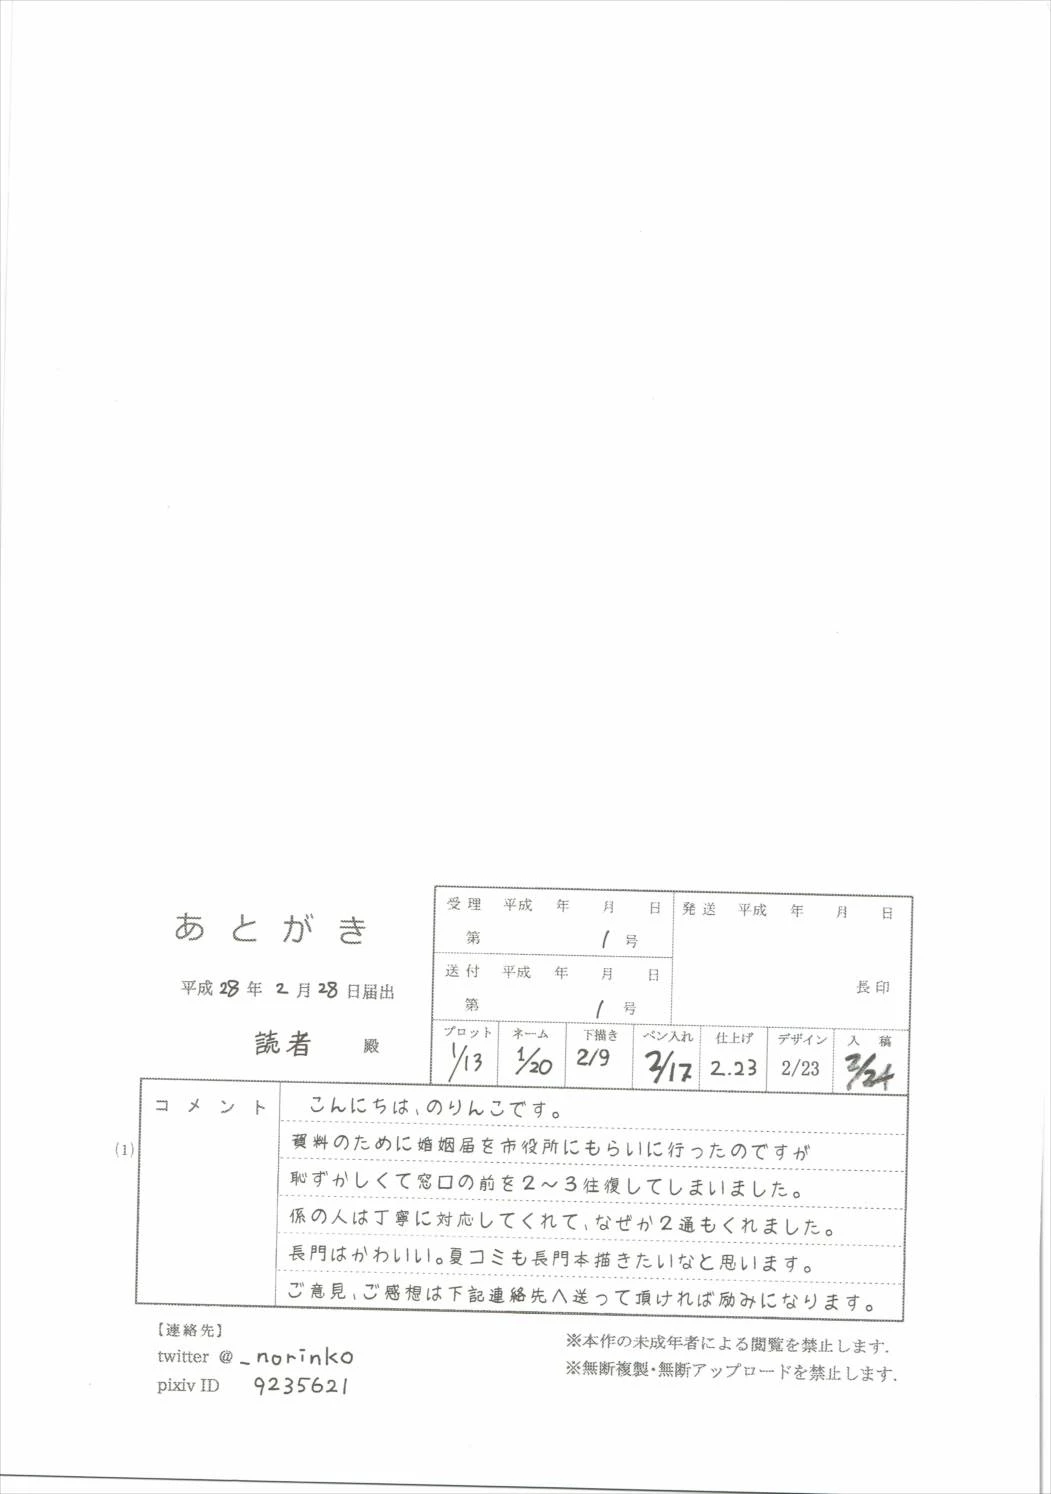 あとがき
平成28年2月28日届出
読者 殿
受理 平成 年 月 日
第 1 号
送付 平成 年 月 日
第 1 号
発送 平成 年 月 日
長印
プロット ネーム 下描き ペン入れ 仕上げ デザイン 入稿
1/13 1/20 2/9 2/17 2.23 2/23 2/24
(1)
コメント
こんにちは、のりんこです。
資料のために婚姻届を市役所にもらいに行ったのですが
恥ずかしくて窓口の前を2〜3往復してしまいました。
係の人は丁寧に対応してくれて、なぜか2通もくれました。
長門はかわいい。夏コミも長門本描きたいなと思います。
ご意見、ご感想は下記連絡先へ送って頂ければ励みになります。
【連絡先】
twitter @_norinko
pixiv ID 9235621
※本作の未成年者による閲覧を禁止します.
※無断複製・無断アップロードを禁止します.